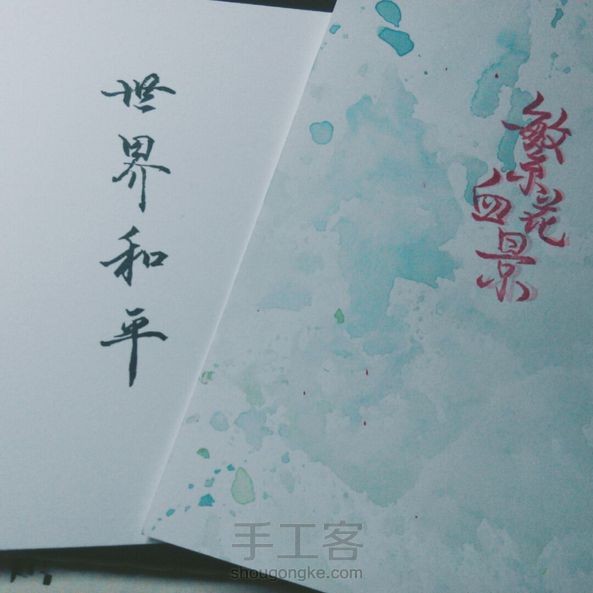 世界和平
繁花
血景
手工客
shougongke.com